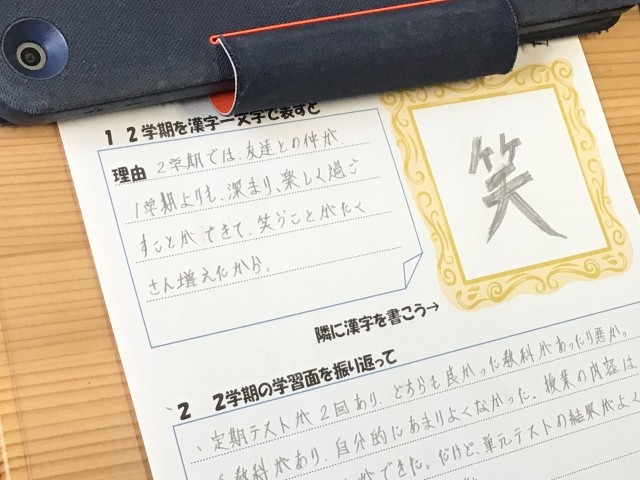 1 2学期を漢字一文字で表すと
理由 2学期では、友達との仲が、
1学期よりも、深まり、楽しく過ご
すことができて、笑うことがたく
さん増えたから。
笑
隣に漢字を書こう→
2 2学期の学習面を振り返って
定期テストが2回あり、どちらも良かった教科があったり悪かっ
教科があり、自分的にあまりよくなかった。授業の内容は
ができた。だけど、単元テストの結果がよく